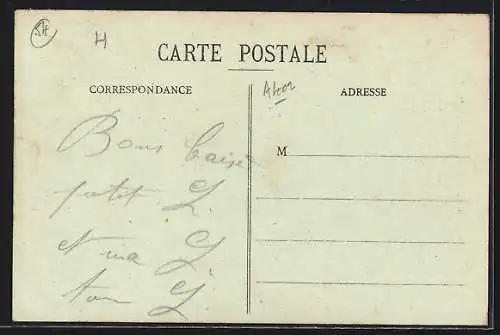 H
CARTE POSTALE
CORRESPONDANCE
ADRESSE
Bons baise
M
petit L
et ma L
ton L